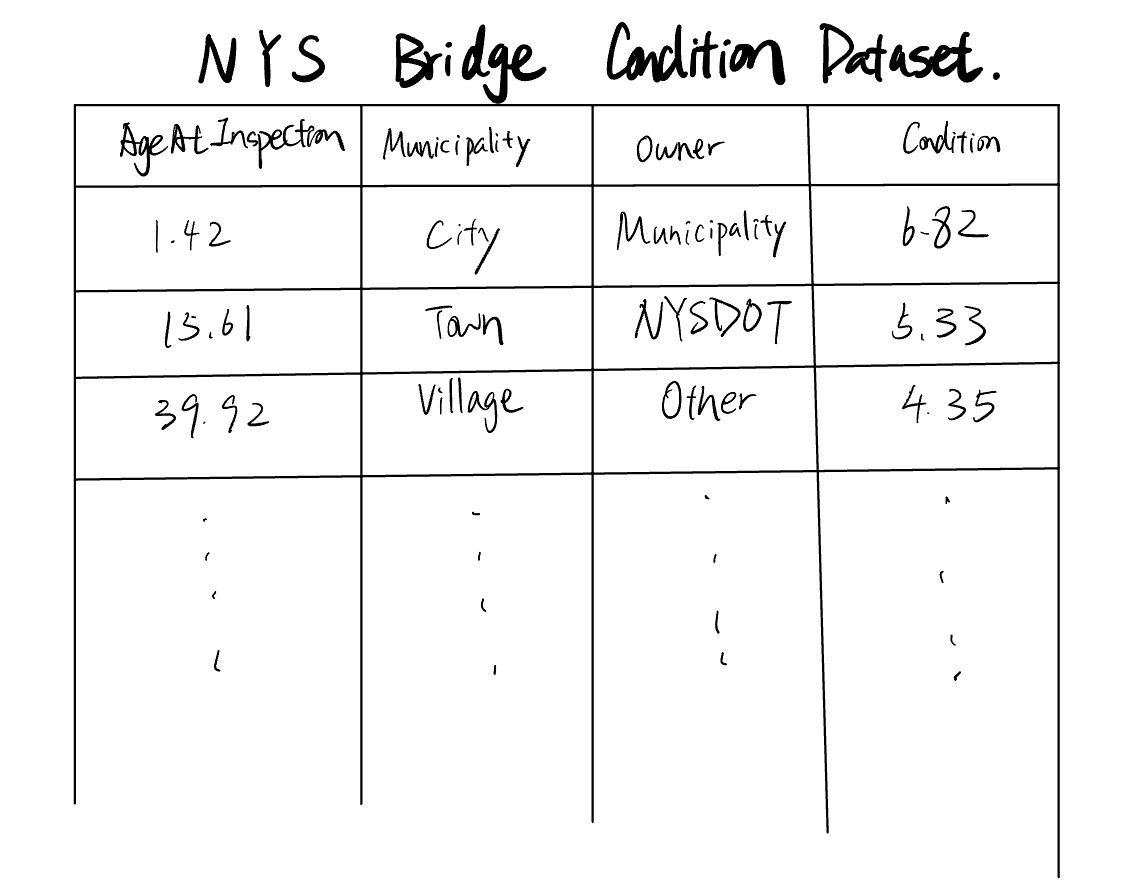 NYS Bridge Condition Dataset.
AgeAtInspection Municipality Owner Condition
1.42 City Municipality 6.82
15.61 Town NYSDOT 5.33
39.92 Village Other 4.35